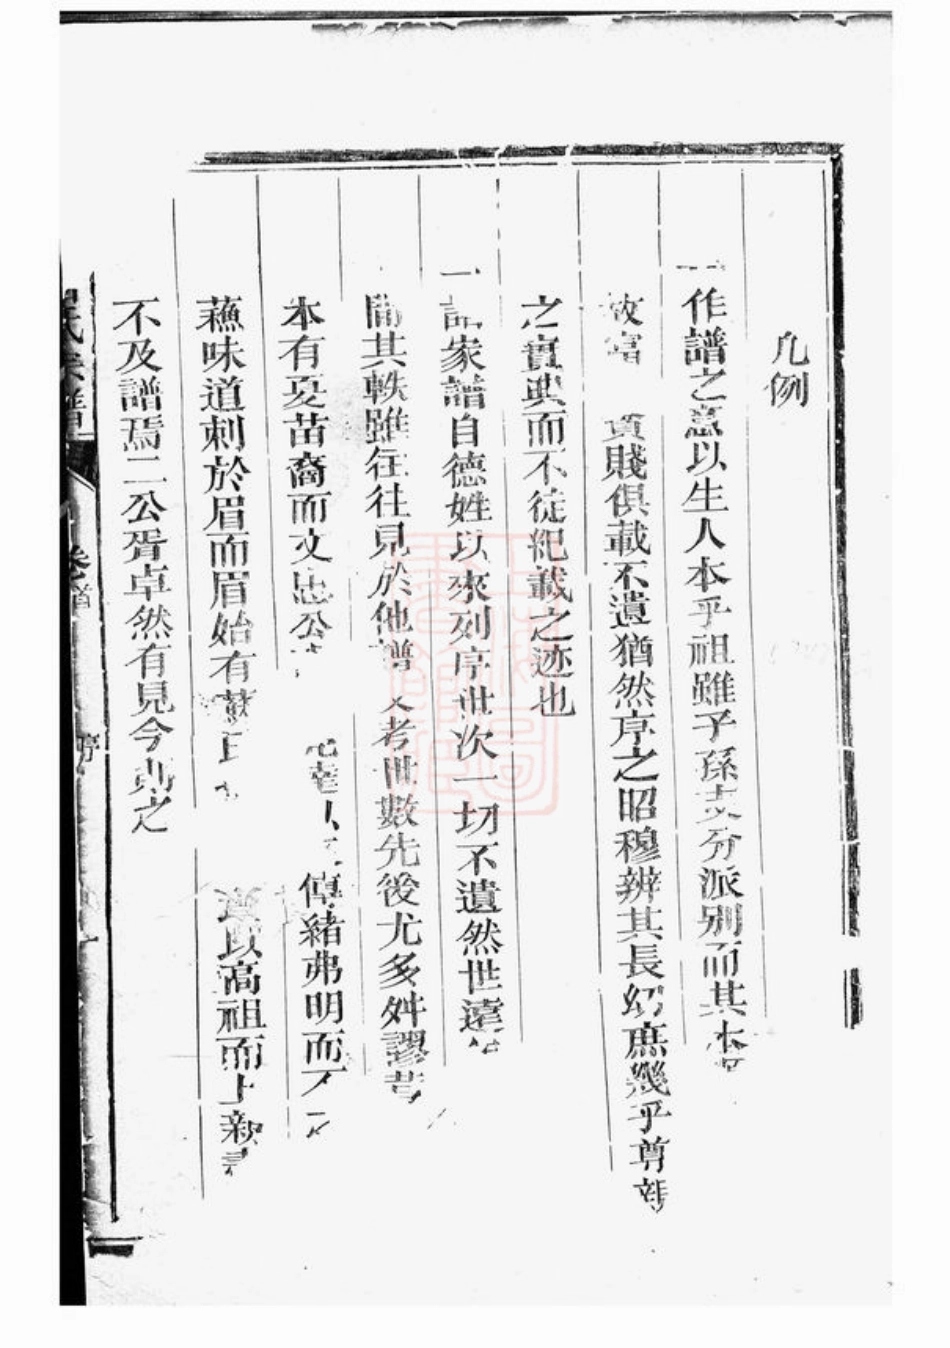 凡例
一作譜之意以生人本乎祖雖子孫支分派別而其本
故富 賤俱載不遺猶然序之昭穆辨其長幼庶幾乎尊
之實典而不徒紀載之迹也
一 家譜自德姓以來列序世次一切不遺然世遠
間其軼雖往往見於他譜 考世數先後尤多舛謬昔
本有夏苗裔而文忠公 傳緒弗明而不
蘇味道刺於眉而眉始有蘇氏 以高祖而上
不及譜焉二公胥卓然有見今 之
氏宗譜 卷首